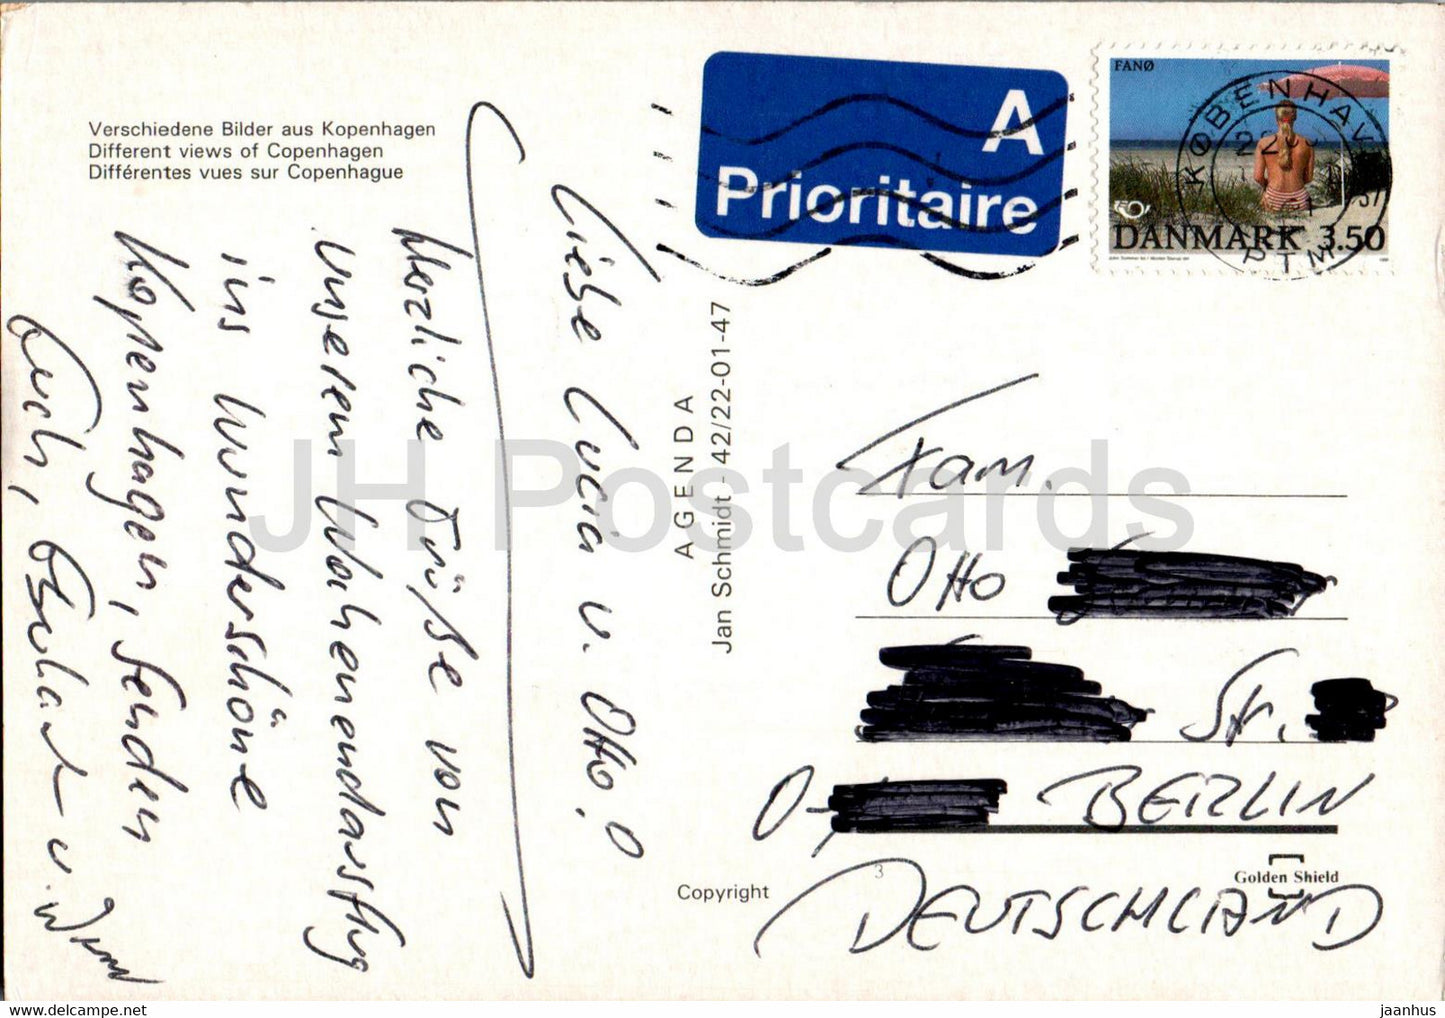 Verschiedene Bilder aus Kopenhagen
Different views of Copenhagen
Différentes vues sur Copenhague
A
Prioritaire
FANØ
KØBENHAV
PTM
DANMARK 3.50
Liebe Lucia u. Otto!
Herzliche Grüße von
unserem Wochenendausflug
ins wunderschöne
Kopenhagen, senden
Euch,
u.
AGENDA
Jan Schmidt - 42/22-01-47
Fam.
Otto
Str.
O-
BERLIN
DEUTSCHLAND
3
Golden Shield
Copyright
JH Postcards
https://www.delcampe.net
jaanhus